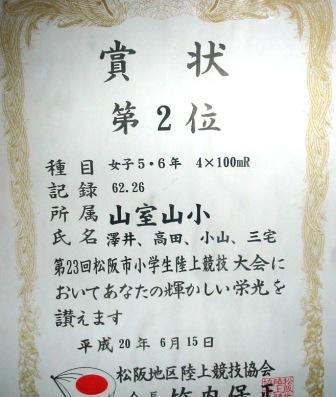 賞状
第2位
種目 女子5・6年 4×100mR
記録 62.26
所属 山室山小
氏名 澤井、高田、小山、三宅
第23回松阪市小学生陸上競技大会に
おいてあなたの輝かしい栄光を
讃えます
平成20年6月15日
松阪地区陸上競技協会
会長 竹内保